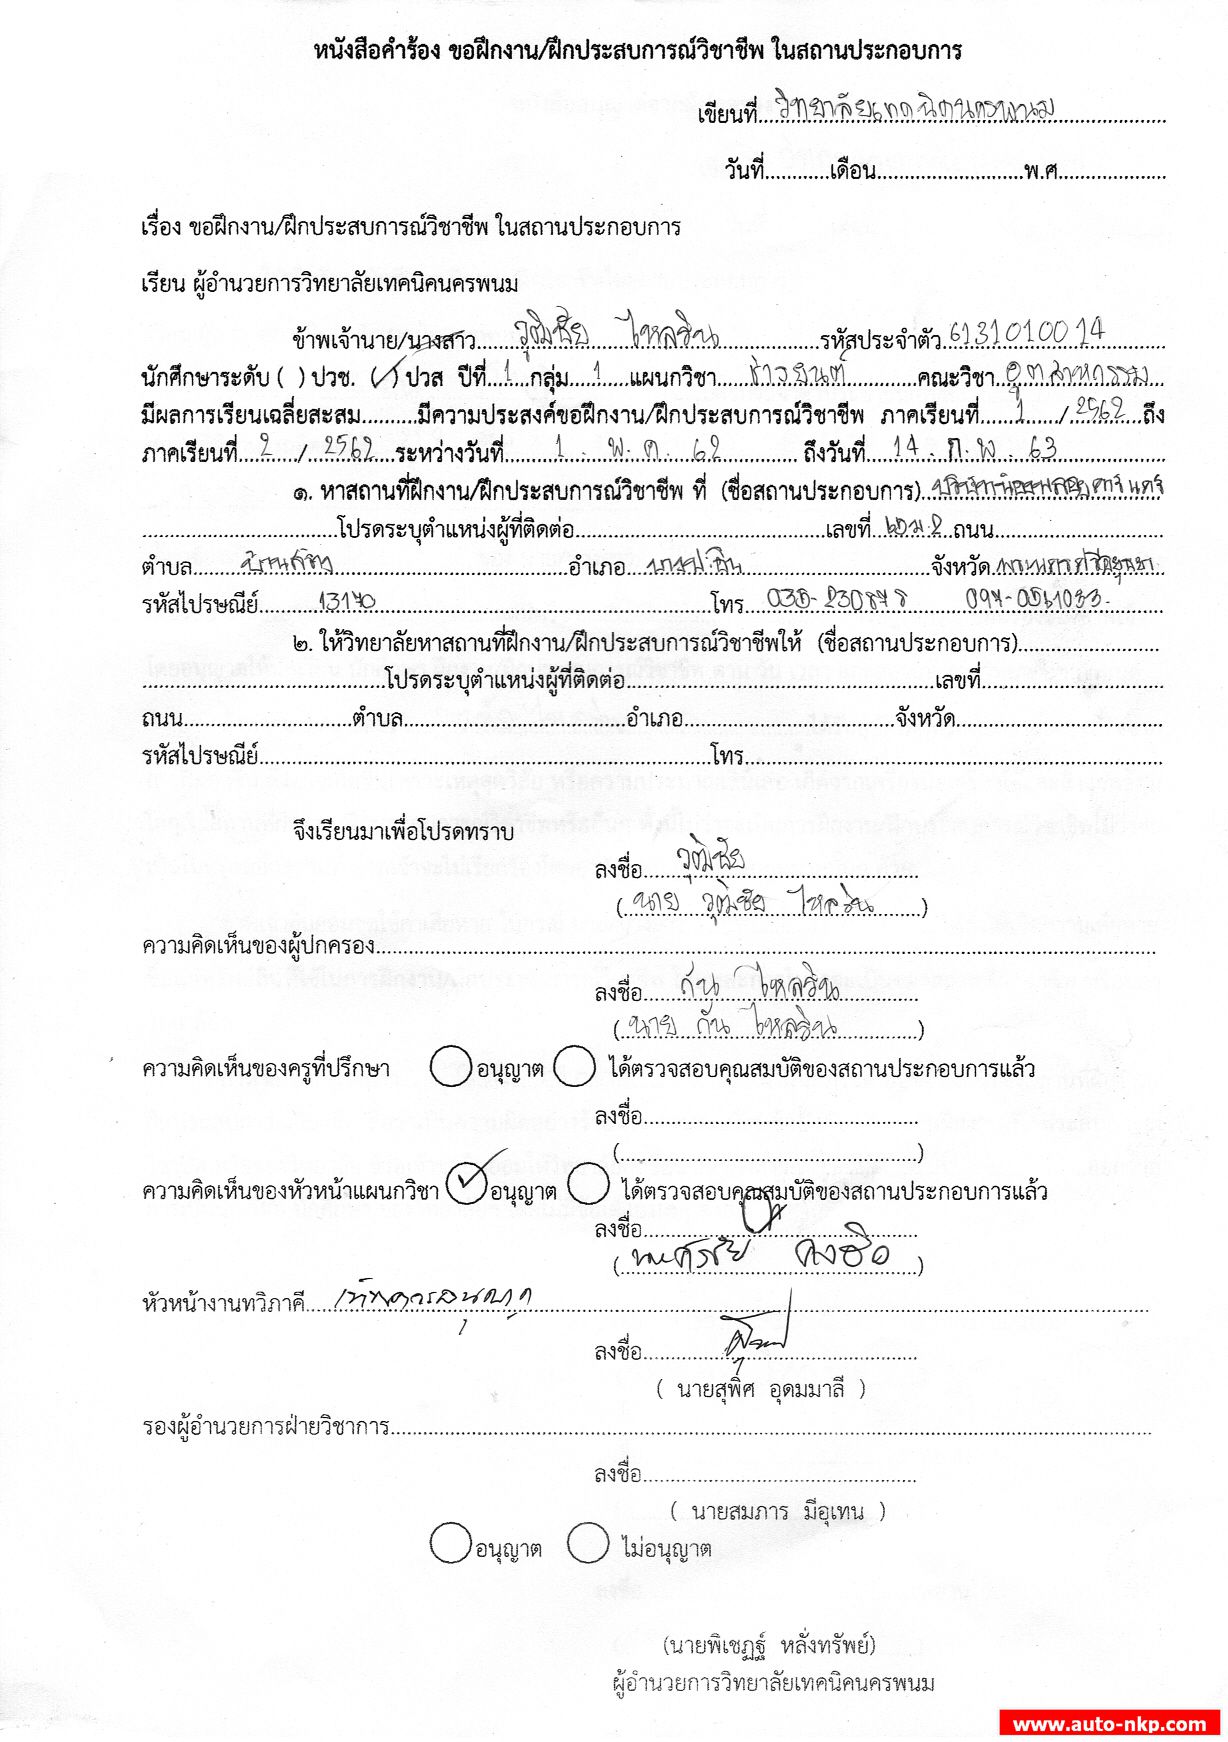 หนังสือคำร้อง ขอฝึกงาน/ฝึกประสบการณ์วิชาชีพ ในสถานประกอบการ
เขียนที่ วิทยาลัยเทคนิคนครพนม
วันที่...........เดือน.........................พ.ศ...................
เรื่อง ขอฝึกงาน/ฝึกประสบการณ์วิชาชีพ ในสถานประกอบการ
เรียน ผู้อำนวยการวิทยาลัยเทคนิคนครพนม
ข้าพเจ้านาย/นางสาว วุฒิชัย ไหลริน รหัสประจำตัว 6131010014
นักศึกษาระดับ ( ) ปวช. (✓) ปวส ปีที่ 1 กลุ่ม 1 แผนกวิชา ช่างยนต์ คณะวิชา อุตสาหกรรม
มีผลการเรียนเฉลี่ยสะสม..........มีความประสงค์ขอฝึกงาน/ฝึกประสบการณ์วิชาชีพ ภาคเรียนที่ 1 / 2562 ถึง
ภาคเรียนที่ 2 / 2562 ระหว่างวันที่ 1 พ.ค. 62 ถึงวันที่ 14 ก.พ. 63
๑. หาสถานที่ฝึกงาน/ฝึกประสบการณ์วิชาชีพ ที่ (ชื่อสถานประกอบการ) คาร์ แคร์
โปรดระบุตำแหน่งผู้ที่ติดต่อ เลขที่ ถนน
ตำบล อำเภอ บางปะอิน จังหวัด พระนครศรีอยุธยา
รหัสไปรษณีย์ 13170 โทร
๒. ให้วิทยาลัยหาสถานที่ฝึกงาน/ฝึกประสบการณ์วิชาชีพให้ (ชื่อสถานประกอบการ)
โปรดระบุตำแหน่งผู้ที่ติดต่อ เลขที่
ถนน ตำบล อำเภอ จังหวัด
รหัสไปรษณีย์ โทร
จึงเรียนมาเพื่อโปรดทราบ
ลงชื่อ วุฒิชัย
(นาย วุฒิชัย ไหลริน)
ความคิดเห็นของผู้ปกครอง
ลงชื่อ กัน ไหลริน
(นาย กัน ไหลริน)
ความคิดเห็นของครูที่ปรึกษา อนุญาต ได้ตรวจสอบคุณสมบัติของสถานประกอบการแล้ว
ลงชื่อ
(..........)
ความคิดเห็นของหัวหน้าแผนกวิชา ✓ อนุญาต ได้ตรวจสอบคุณสมบัติของสถานประกอบการแล้ว
ลงชื่อ
( คงฮือ )
หัวหน้างานทวิภาคี เห็นควรอนุญาต
ลงชื่อ
( นายสุพิศ อุดมมาลี )
รองผู้อำนวยการฝ่ายวิชาการ
ลงชื่อ
( นายสมภาร มีอุเทน )
อนุญาต ไม่อนุญาต
(นายพิเชฏฐ์ หลั่งทรัพย์)
ผู้อำนวยการวิทยาลัยเทคนิคนครพนม
www.auto-nkp.com